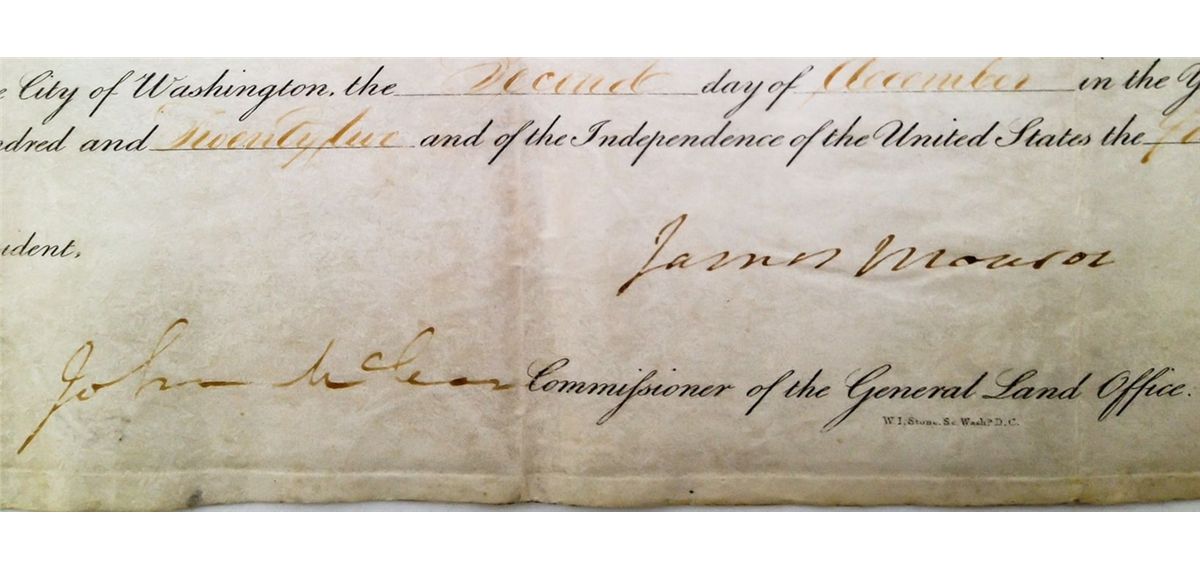 City of Washington, the Second day of December in the
and Twenty two and of the Independence of the United States the
ident,
James Monroe
John McLean Commiſsioner of the General Land Office.
W. I. Stone. Sc. Washⁿ D. C.